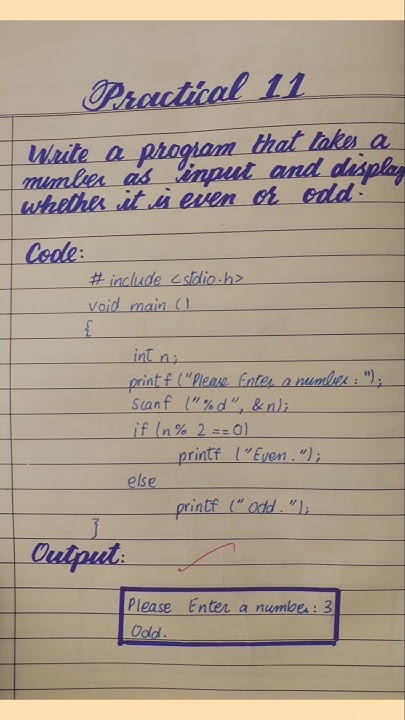 Practical 11
Write a program that takes a
number as input and display
whether it is even or odd.
Code:
# include <stdio.h>
void main ()
{
int n;
printf ("Please Enter a number: ");
scanf ("%d", &n);
if (n% 2 ==0)
printf ("Even.");
else
printf ("Odd.");
}
Output:
Please Enter a number: 3
Odd.